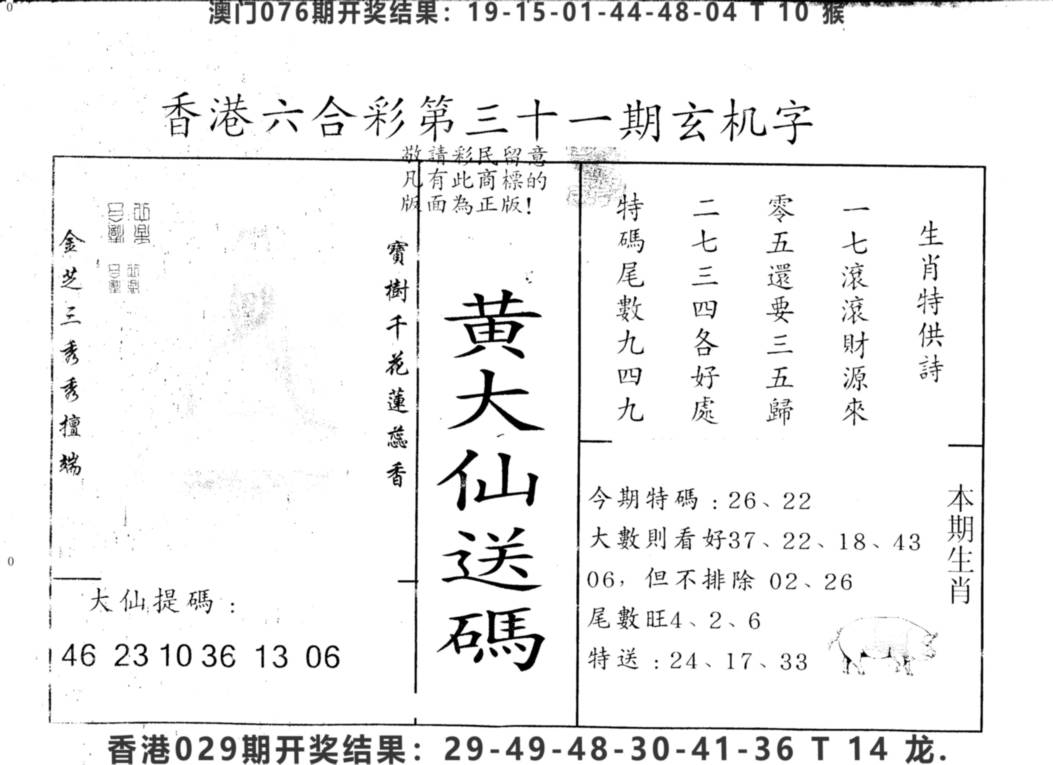 澳门076期开奖结果：19-15-01-44-48-04 T 10 猴
香港六合彩第三十一期玄机字
敬請彩民留意
凡有此商標的
版面為正版!
生肖特供詩
一七滾滾財源來
零五還要三五歸
二七三四各好處
特碼尾數九四九
黄大仙送碼
寶樹千花蓮蕊香
金芝三秀秀壇端
大仙提碼：
46 23 10 36 13 06
本期生肖
今期特碼：26、22
大數則看好37、22、18、43
06，但不排除 02、26
尾數旺4、2、6
特送：24、17、33
香港029期开奖结果：29-49-48-30-41-36 T 14 龙.